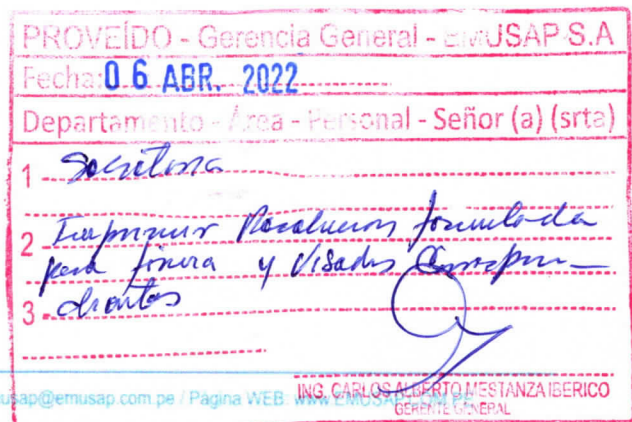 PROVEÍDO - Gerencia General - EMUSAP S.A
Fecha: 06 ABR. 2022
Departamento - Área - Personal - Señor (a) (srta)
1 - Secretaria
2 Imprimir Resolucion formulada
para firma y Visados Correspon-
3 - dientes
usap@emusap.com.pe / Página WEB: www.EMUSAP.COM.PE
ING. CARLOS ALBERTO MESTANZA IBERICO
GERENTE GENERAL